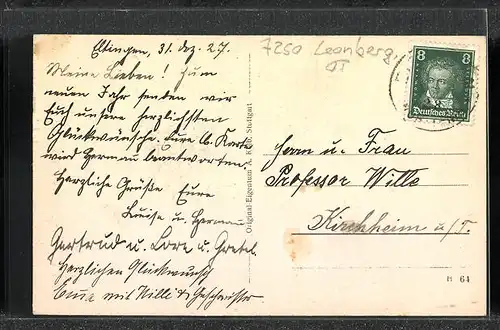 Eltingen, 31. Dez. 27.
Meine Lieben! Zum
neuen Jahr senden wir
Euch unsere herzlichsten
Glückwünsche. Eure lb. Karte
wird Hermann beantworten.
Herzliche Grüße Eure
Luise u. Hermann
Gertrud u. Lore u. Gretel.
Herzlichen Glückwunsch
Emma mit Willi & Geschwister
Original Eigentum Stuttgart
7250 Leonberg,
OT
8 8
Deutsches Reich
Herrn u. Frau
Professor Wille
Kirchheim u/T.
B 64